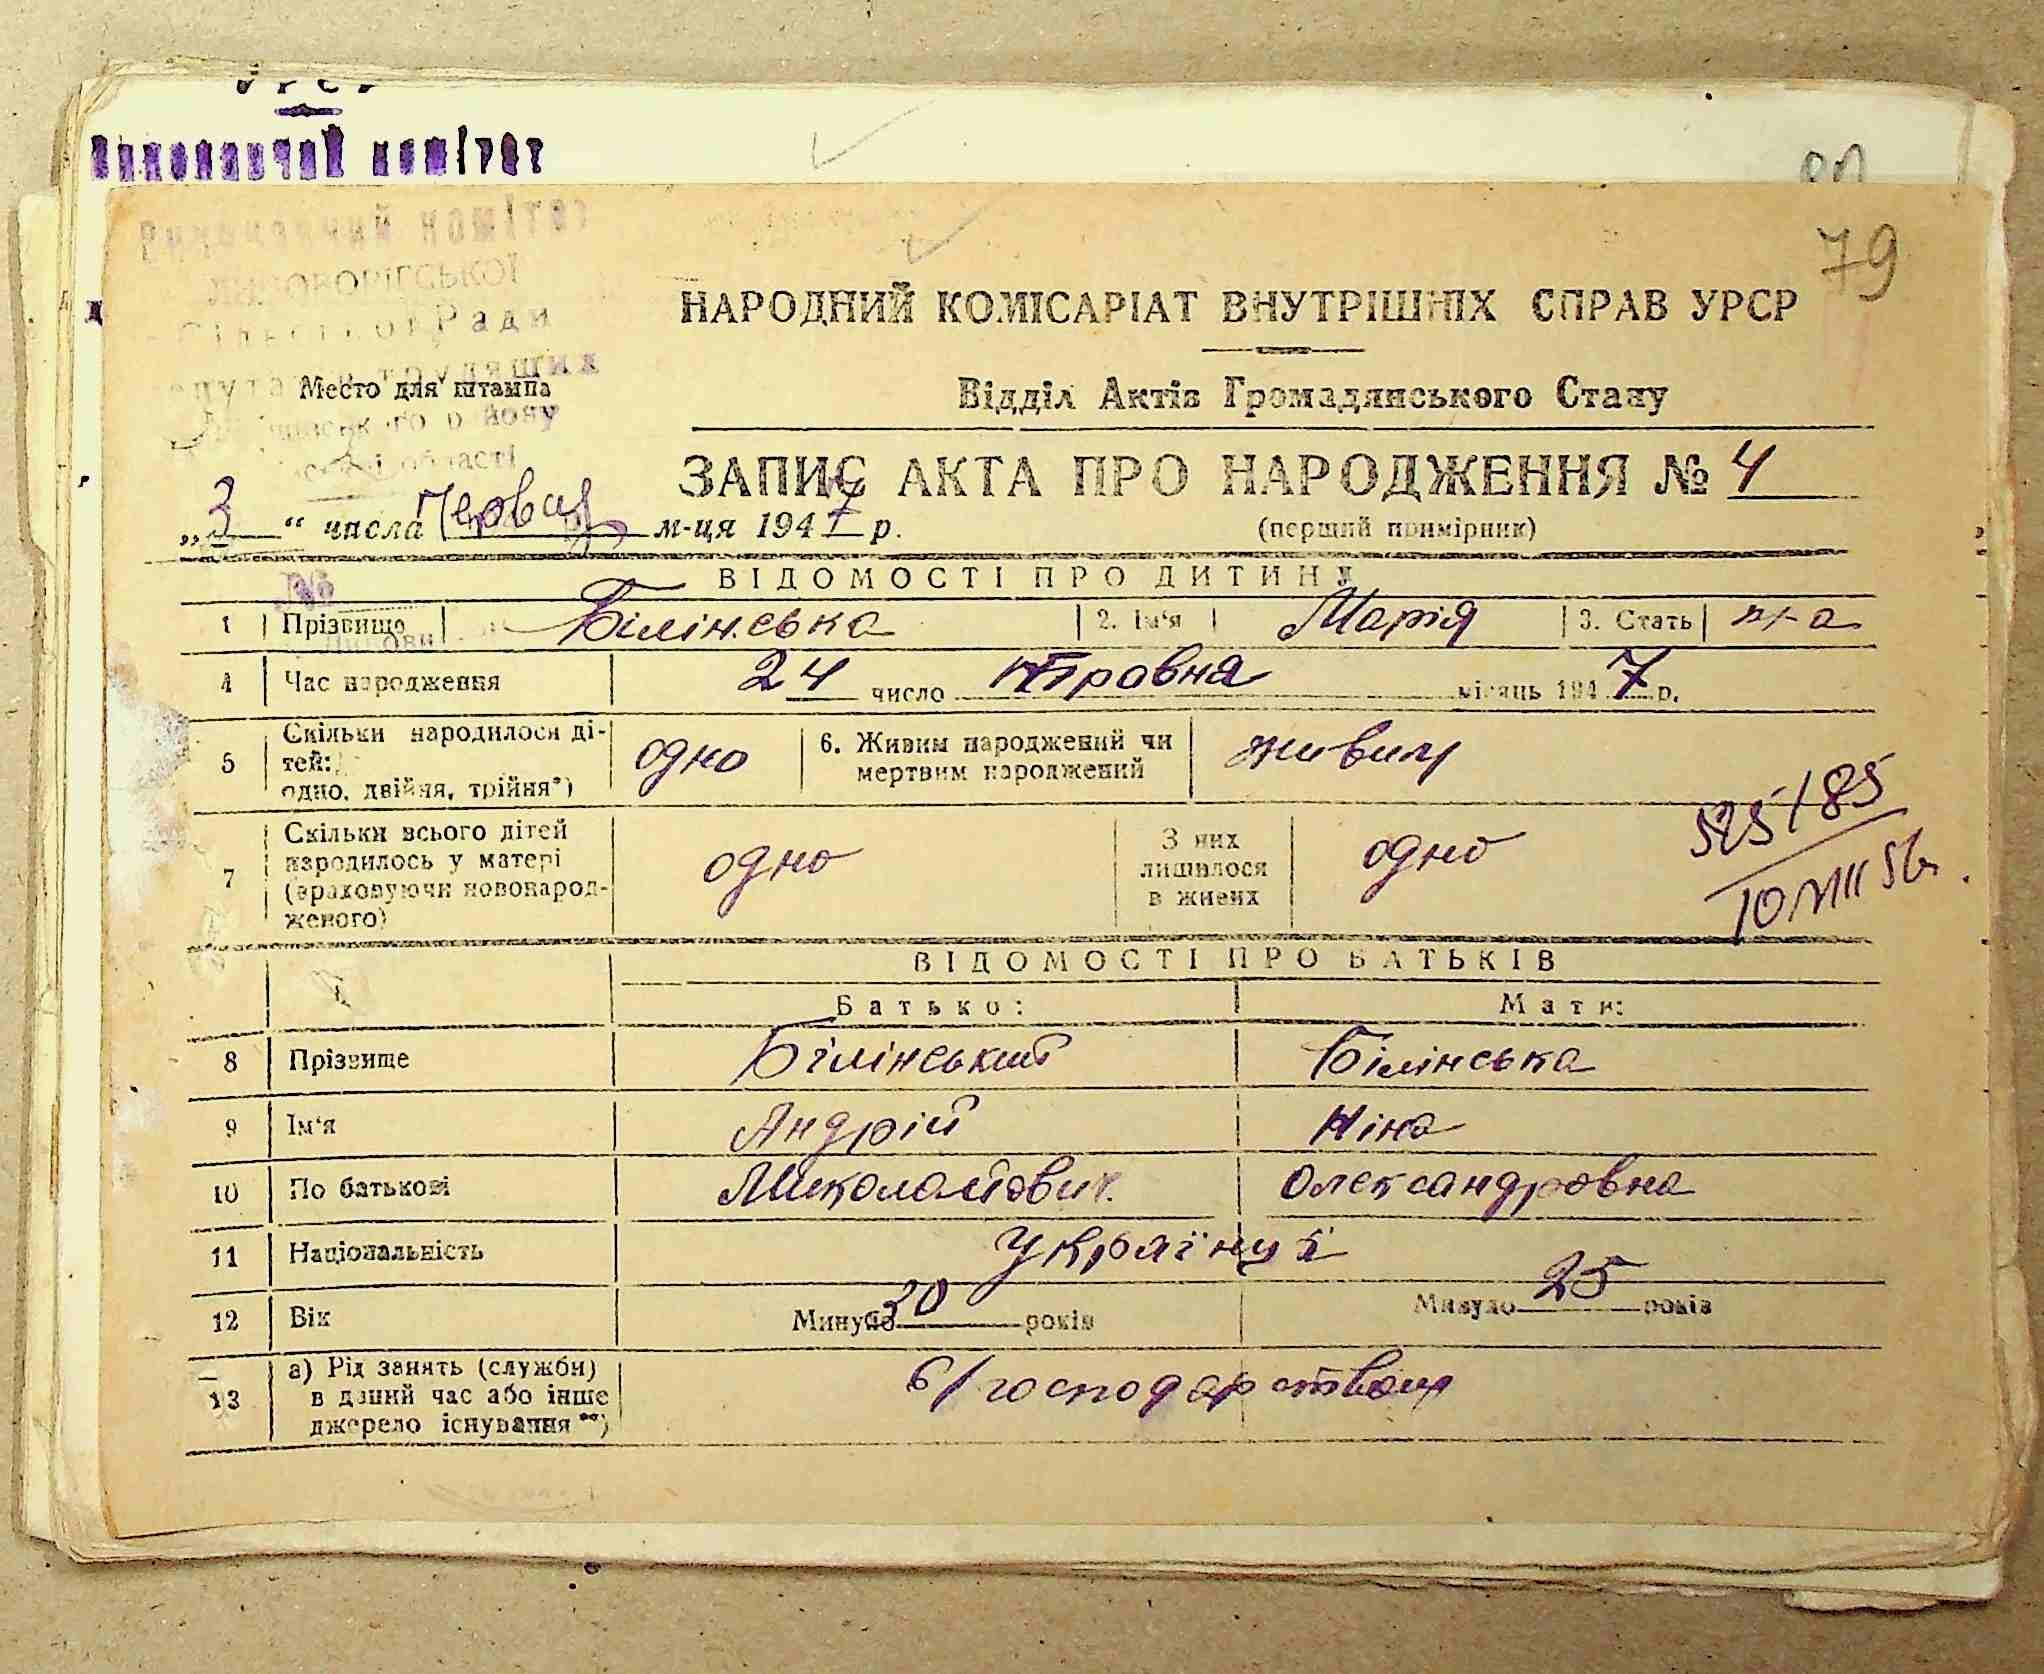 УРСР
Виконавчий комітет
80
79
Виконавчий комітет
Сільської Ради
трудящих
області
Место для штампа
НАРОДНИЙ КОМІСАРІАТ ВНУТРІШНІХ СПРАВ УРСР
Відділ Актів Громадянського Стану
ЗАПИС АКТА ПРО НАРОДЖЕННЯ № 4
„3“ числа Червня м-ця 1947 р.
(перший примірник)
ВІДОМОСТІ ПРО ДИТИНУ
1 Прізвище Білінська 2. Ім'я Марія 3. Стать
4 Час народження 24 число Травня місяць 1947 р.
5 Скільки народилося ді-
тей:
одно, двійня, трійня*)
одно
6. Живим народжений чи
мертвим народжений
живим
7 Скільки всього дітей
народилось у матері
(враховуючи новонарод-
женого)
одно
З них
лишилося
в живих
одно
525/85
10 VIII 56
ВІДОМОСТІ ПРО БАТЬКІВ
Батько: Мати:
8 Прізвище Білінський Білінська
9 Ім'я Андрій Ніна
10 По батькові Миколайович Олександровна
11 Національність Українці
12 Вік Минуло 30 років Минуло 25 років
13 а) Рід занять (служби)
в даний час або інше
джерело існування**)
с/господарством